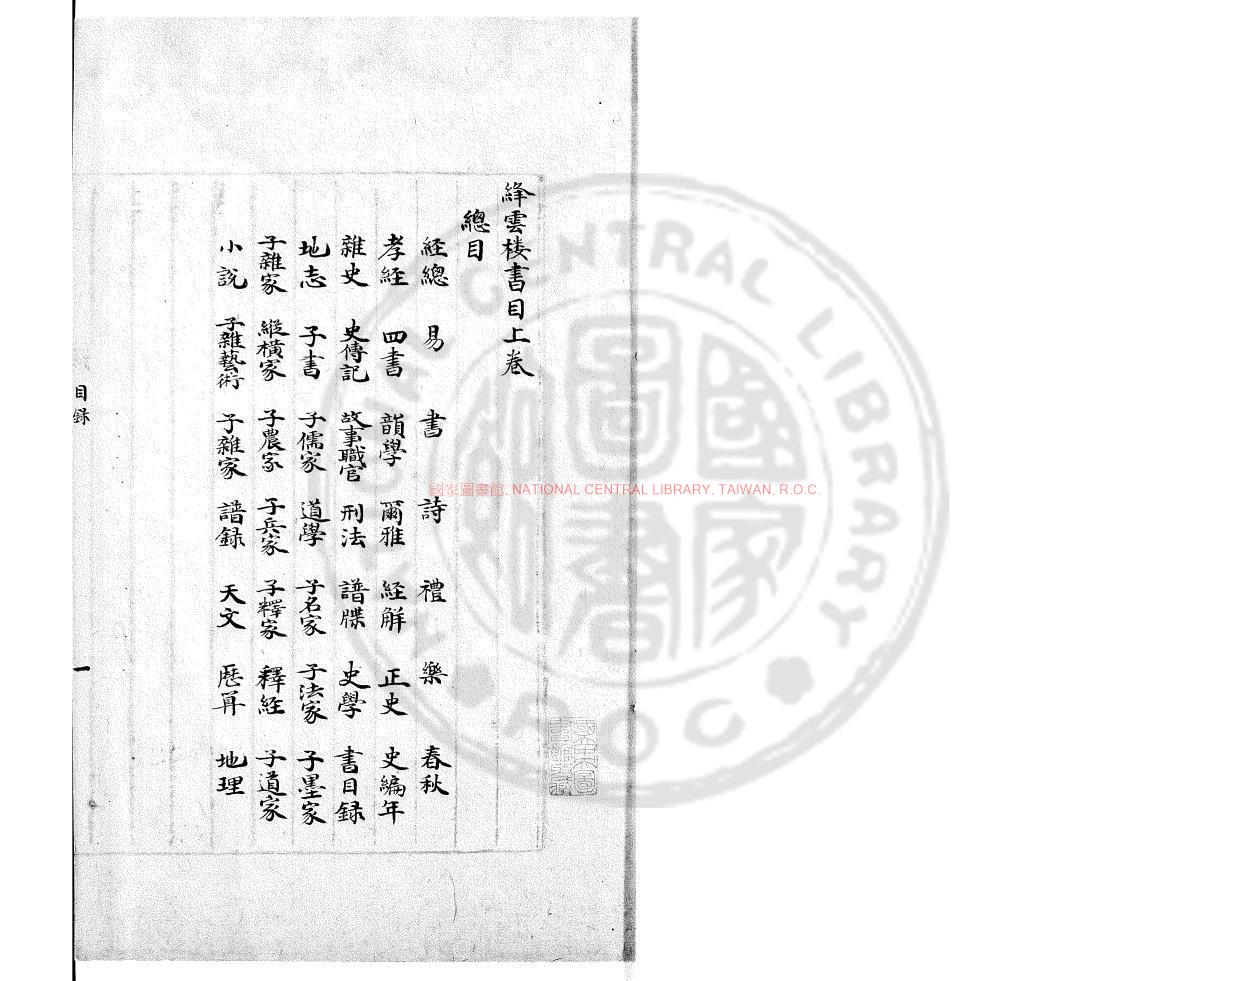 絳雲楼書目上卷
總目
経總 易 書 詩 禮 樂 春秋
孝経 四書 韻學 爾雅 経觧 正史 史編年
雜史 史傳記 故事職官 刑法 譜牒 史學 書目録
地志 子書 子儒家 道學 子名家 子法家 子墨家
子雜家 縱橫家 子農家 子兵家 子釋家 釋経 子道家
小説 子雜藝術 子雜家 譜録 天文 厯算 地理
目録
一
國家圖書館, NATIONAL CENTRAL LIBRARY, TAIWAN, R.O.C.
NATIONAL CENTRAL LIBRARY
R.O.C